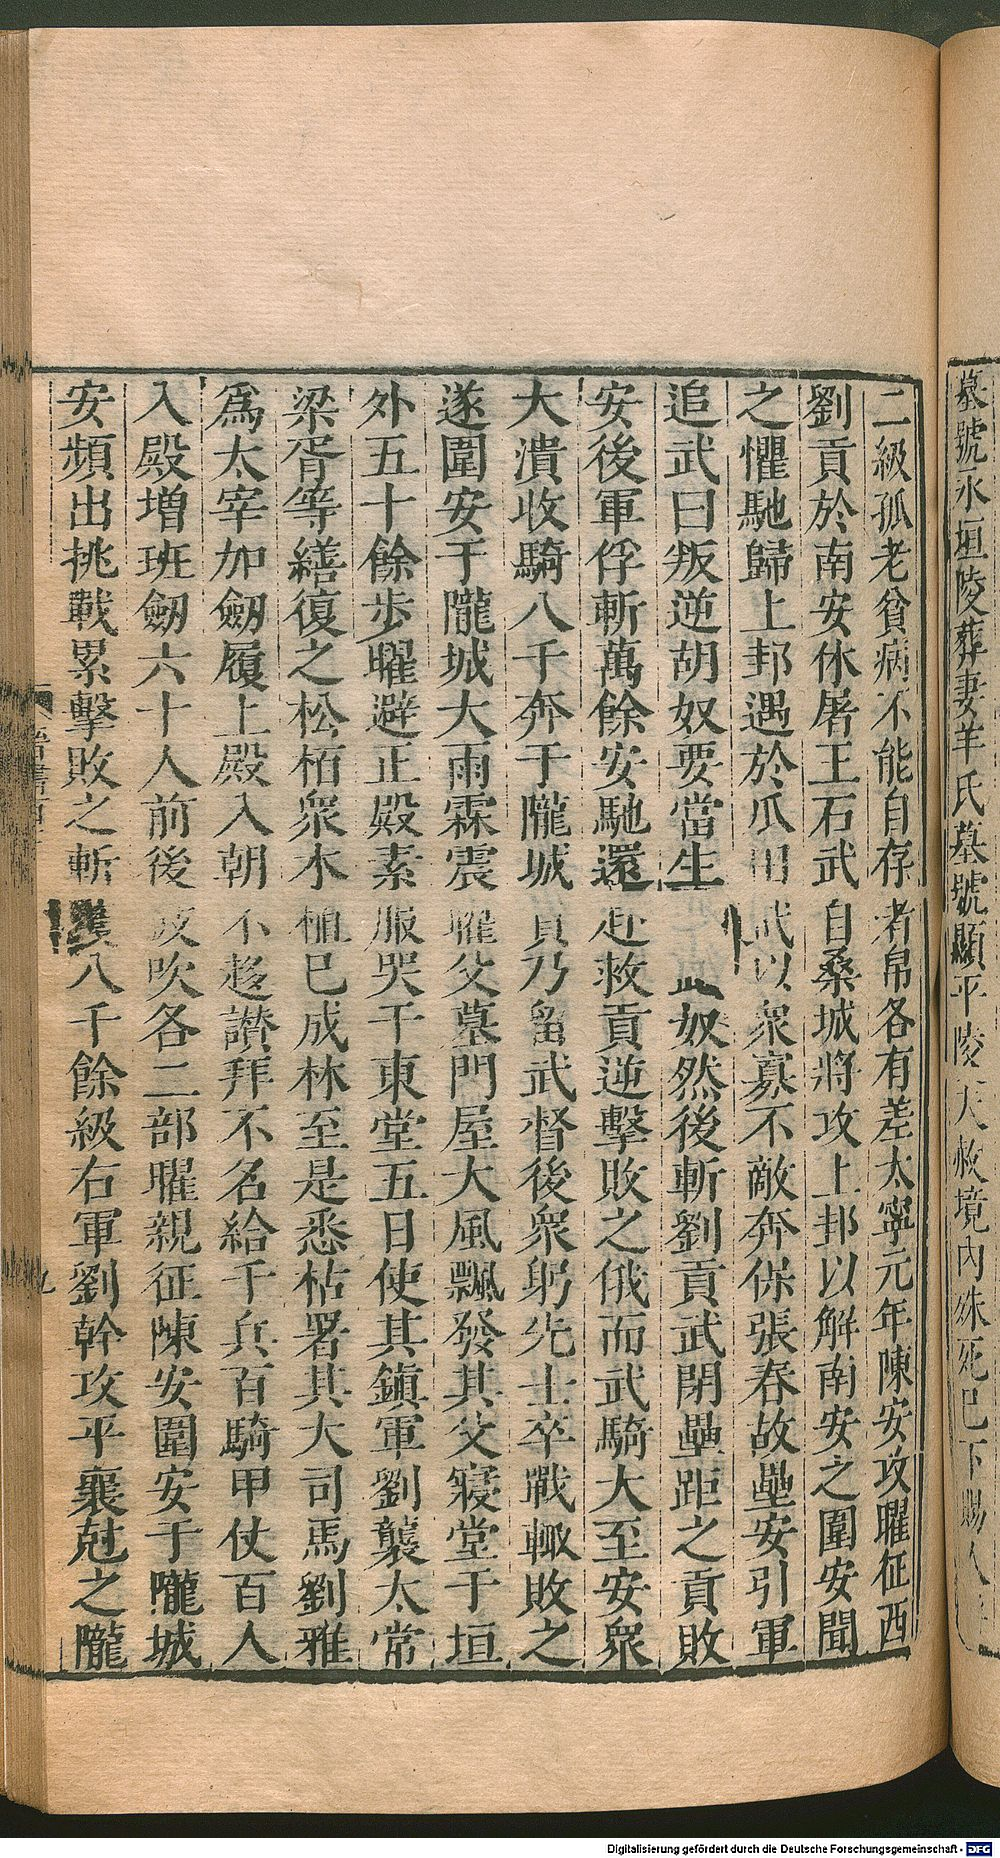 墓號永垣陵葬妻羊氏墓號顯平陵大赦境內殊死已下賜人
二級孤老貧病不能自存者帛各有差太寧元年陳安攻曜征西
劉貢於南安休屠王石武自桑城將攻上邽以解南安之圍安聞
之懼馳歸上邽遇於瓜田武以衆寡不敵奔保張春故壘安引軍
追武曰叛逆胡奴要當生此奴然後斬劉貢武閉壘距之貢敗
安後軍俘斬萬餘安馳還赴救貢逆擊敗之俄而武騎大至安衆
大潰收騎八千奔于隴城貢乃留武督後衆躬先士卒戰輙敗之
遂圍安于隴城大雨霖震曜父墓門屋大風飄發其父寢堂于垣
外五十餘步曜避正殿素服哭于東堂五日使其鎮軍劉襲太常
梁胥等繕復之松栢衆木植已成林至是悉枯署其大司馬劉雅
爲太宰加劒履上殿入朝不趍讃拜不名給千兵百騎甲仗百人
入殿增班劒六十人前後鼓吹各二部曜親征陳安圍安于隴城
安頻出挑戰累擊敗之斬獲八千餘級右軍劉幹攻平襄尅之隴
九
Digitalisierung gefördert durch die Deutsche Forschungsgemeinschaft - DFG